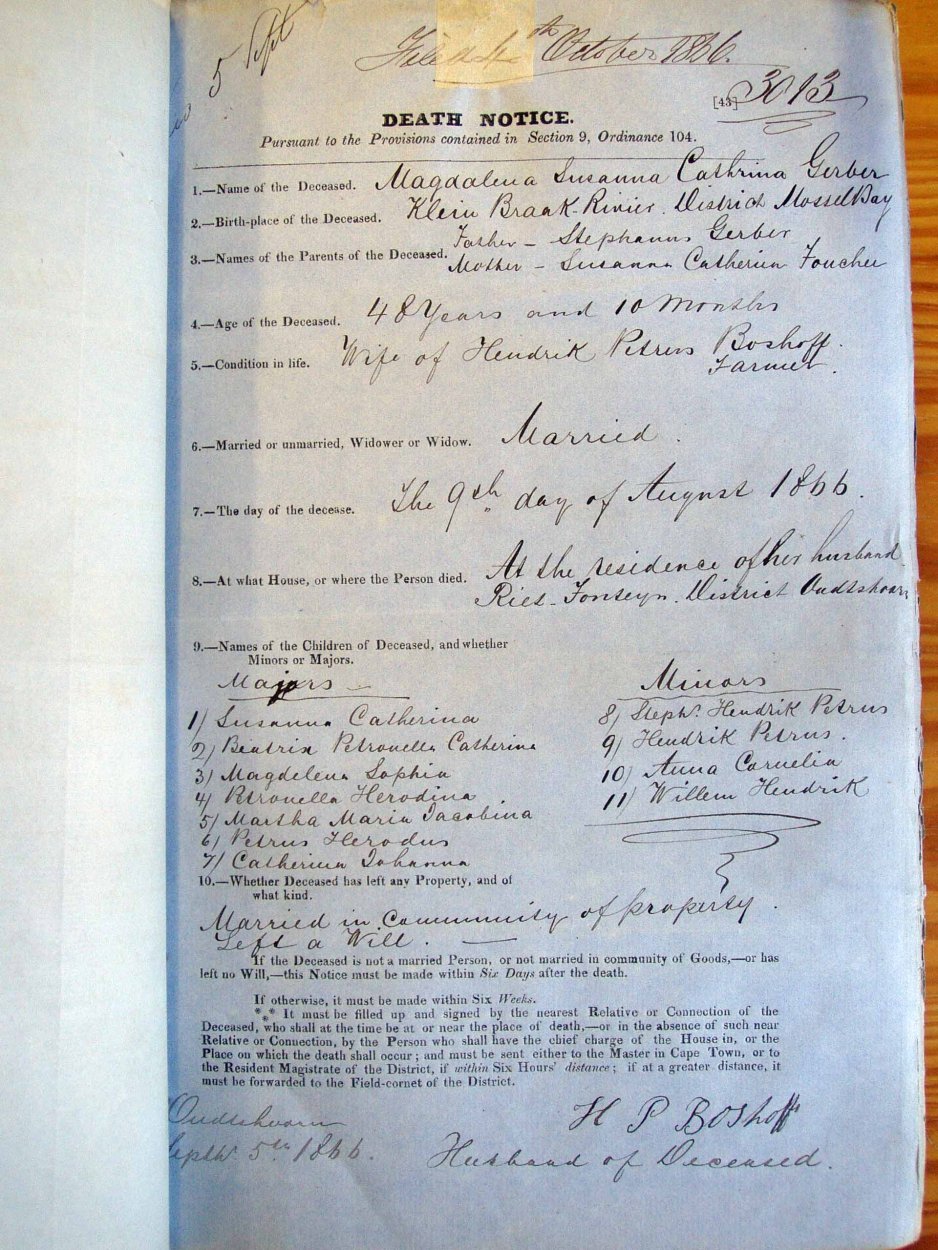 5 Sept
Filed 4th October 1866.
[43] 3013
DEATH NOTICE.
Pursuant to the Provisions contained in Section 9, Ordinance 104.
1.—Name of the Deceased. Magdalena Susanna Cathrina Gerber
2.—Birth-place of the Deceased. Klein Braak Rivier. District Mossel Bay
Father – Stephanus Gerber
3.—Names of the Parents of the Deceased.
Mother – Susanna Catherina Fouchee
4.—Age of the Deceased. 48 Years and 10 Months
5.—Condition in life. Wife of Hendrik Petrus Boshoff.
Farmer.
6.—Married or unmarried, Widower or Widow. Married.
7.—The day of the decease. The 9th day of August 1866.
8.—At what House, or where the Person died. At the residence of her husband
Riet-Fonteyn. District Oudtshoorn
9.—Names of the Children of Deceased, and whether
Minors or Majors.
Majors –
1) Susanna Catherina
2) Beatrix Petronella Catherina
3) Magdelena Sophia
4) Petronella Herodina
5) Martha Maria Jacobina
6) Petrus Herodus
7) Catherina Johanna
Minors
8) Stephs. Hendrik Petrus
9) Hendrik Petrus.
10) Anna Cornelia
11) Willem Hendrik
10.—Whether Deceased has left any Property, and of
what kind.
Married in Community of property.
Left a Will. —
If the Deceased is not a married Person, or not married in community of Goods,—or has
left no Will,—this Notice must be made within Six Days after the death.
If otherwise, it must be made within Six Weeks.
*** It must be filled up and signed by the nearest Relative or Connection of the
Deceased, who shall at the time be at or near the place of death,—or in the absence of such near
Relative or Connection, by the Person who shall have the chief charge of the House in, or the
Place on which the death shall occur; and must be sent either to the Master in Cape Town, or to
the Resident Magistrate of the District, if within Six Hours' distance; if at a greater distance, it
must be forwarded to the Field-cornet of the District.
Oudtshoorn
Septbr 5th 1866.
H P Boshoff
Husband of Deceased.